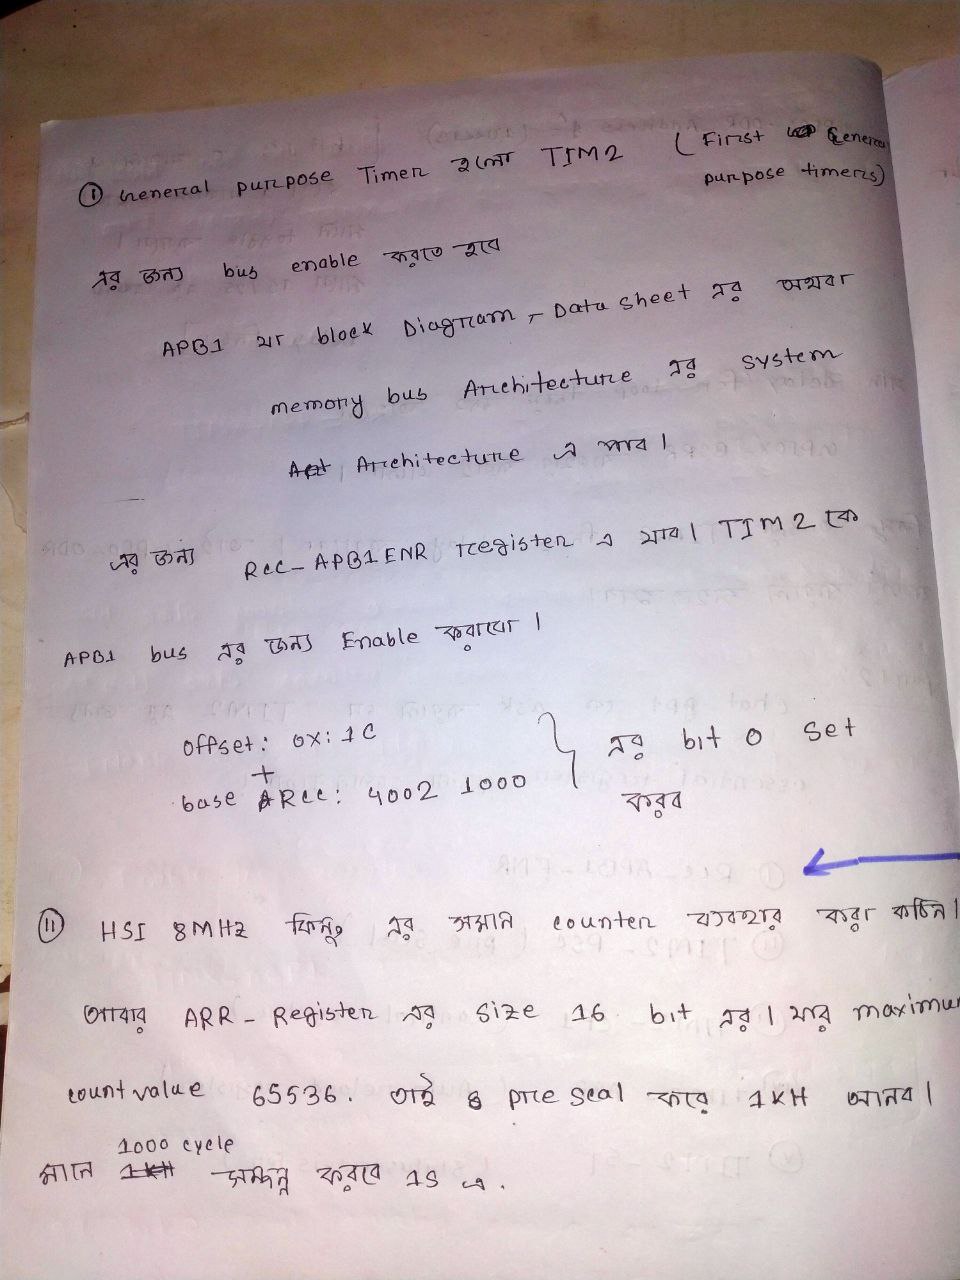 ① General purpose Timer হলো TIM2 (First General
purpose timers)
এর জন্য bus enable করতে হবে
APB1 যা block Diagram, Data sheet এর অথবা
memory bus Architecture এর system
Architecture এ পাব।
এর জন্য RCC_APB1ENR register এ যাব। TIM2 কে
APB1 bus এর জন্য Enable করাবো।
offset: 0x: 1C
+
base RCC: 4002 1000
এর bit 0 set
করব
⑪ HSI 8MHz কিন্তু এর সমান counter ব্যবহার করা কঠিন।
আবার ARR-Register এর size 16 bit এর। যার maximum
count value 65536. তাই prescal করে 1KH আনব।
1000 cycle
মানে সম্পন্ন করবে 1S এ.